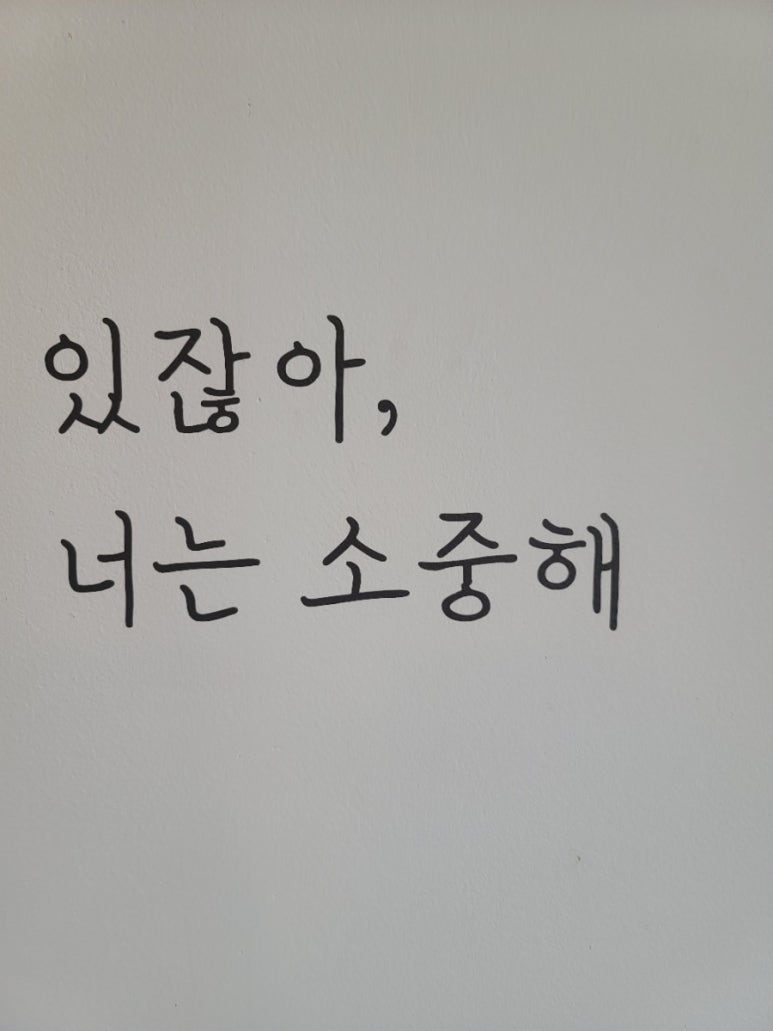 있잖아,
너는 소중해